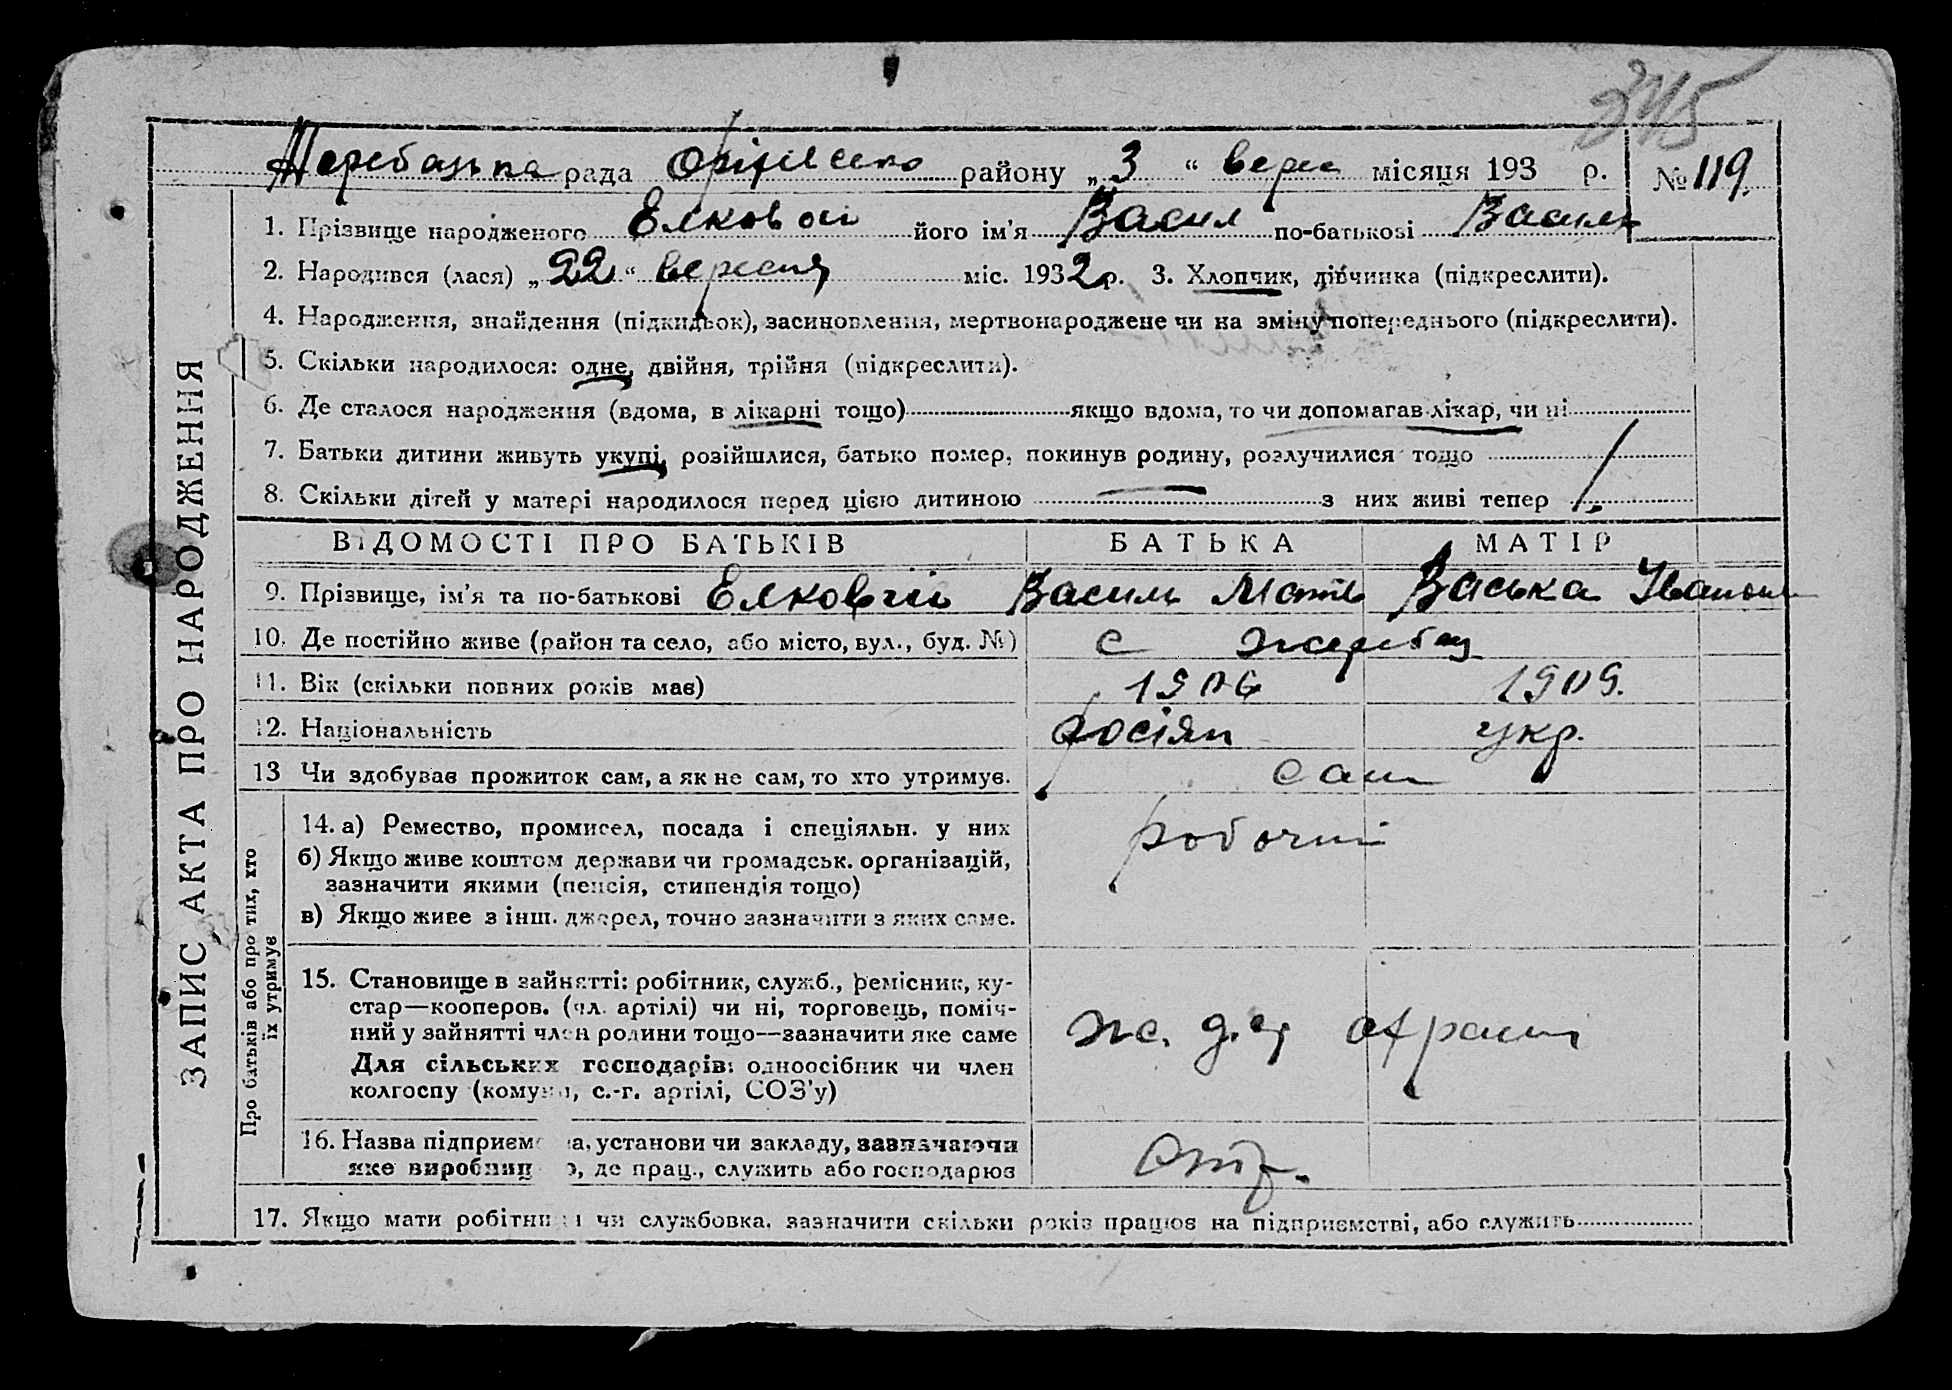 345
Жеребецька рада Оріхівсько району „ 3 “ верес місяця 193 р. № 119.
ЗАПИС АКТА ПРО НАРОДЖЕННЯ
1. Прізвище народженого Елковой його ім'я Васил по-батькові Василь
2. Народився (лася) „ 22 “ вересня міс. 1932 р. 3. Хлопчик, дівчинка (підкреслити).
4. Народження, знайдення (підкидьок), засиновлення, мертвонароджене чи на зміну попереднього (підкреслити).
5. Скільки народилося: одне, двійня, трійня (підкреслити).
6. Де сталося народження (вдома, в лікарні тощо) якщо вдома, то чи допомагав лікар, чи ні
7. Батьки дитини живуть укупі, розійшлися, батько помер, покинув родину, розлучилися тощо
8. Скільки дітей у матері народилося перед цією дитиною — з них живі тепер 1.
ВІДОМОСТІ ПРО БАТЬКІВ БАТЬКА МАТІР
9. Прізвище, ім'я та по-батькові Васил Васька Іванов
10. Де постійно живе (район та село, або місто, вул., буд. №) с Жеребец
11. Вік (скільки повних років має) 1906 1909.
12. Національність росіян укр.
13 Чи здобував прожиток сам, а як не сам, то хто утримує. сам
Про батьків або про тих, хто
їх утримує
14. а) Ремество, промисел, посада і спеціяльн. у них робочий
б) Якщо живе коштом держави чи громадськ. організацій,
зазначити якими (пенсія, стипендія тощо)
в) Якщо живе з інш. джерел, точно зазначити з яких саме.
15. Становище в зайнятті: робітник, служб., ремісник, ку-
стар—кооперов. (чл. артілі) чи ні, торговець, поміч-
ний у зайнятті член родини тощо—зазначити яке саме ж. д.
Для сільських господарів: одноосібник чи член
колгоспу (комуни, с.-г. артілі, СОЗ'у)
16. Назва підприємства, установи чи закладу, зазначаючи
яке виробниц , де прац., служить або господарює
17. Якщо мати робітниця чи службовка, зазначити скільки років працює на підприємстві, або служить